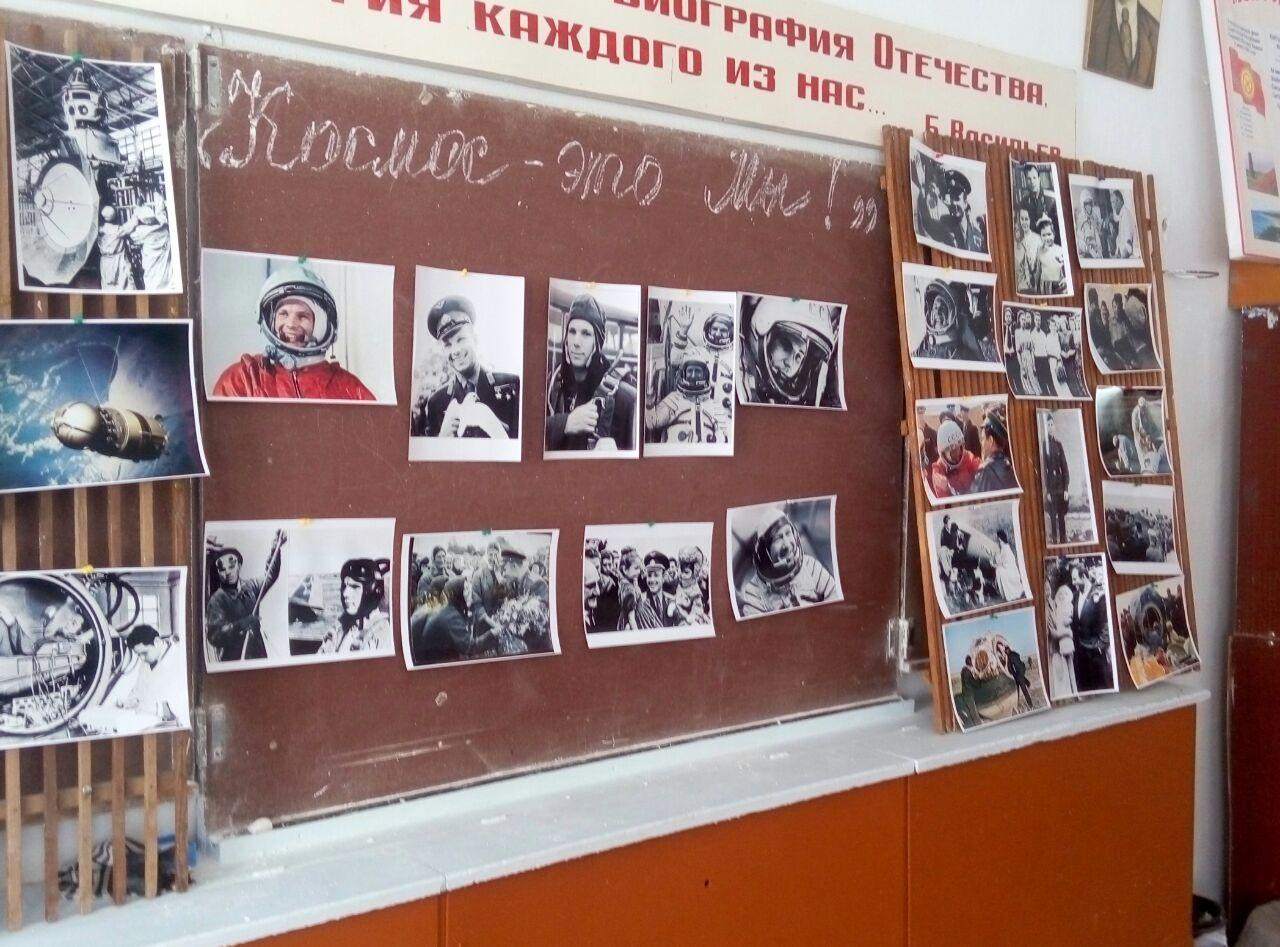 БИОГРАФИЯ ОТЕЧЕСТВА.
КАЖДОГО ИЗ НАС...
Б. Васильев
„Космос - это Мы!”